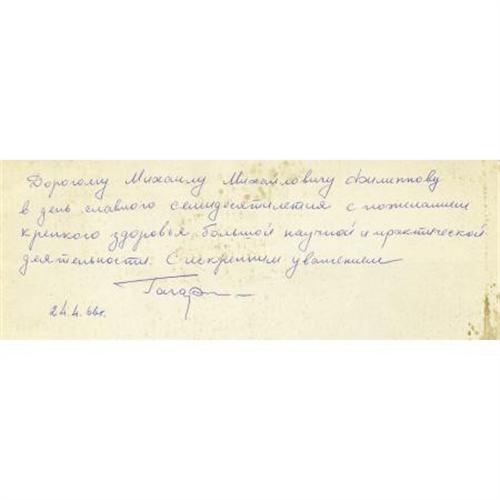 Дорогому Михаилу Михайловичу Филиппову
в день славного семидесятилетия с пожеланием
крепкого здоровья, большой научной и практической
деятельности. С искренним уважением
Гагарин
24.4.66г.